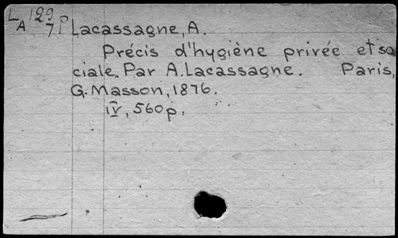 L 129 P
A 71
Lacassagne, A.
Précis d'hygiène privée et so
ciale. Par A. Lacassagne. Paris,
G. Masson, 1876.
IV, 560p.